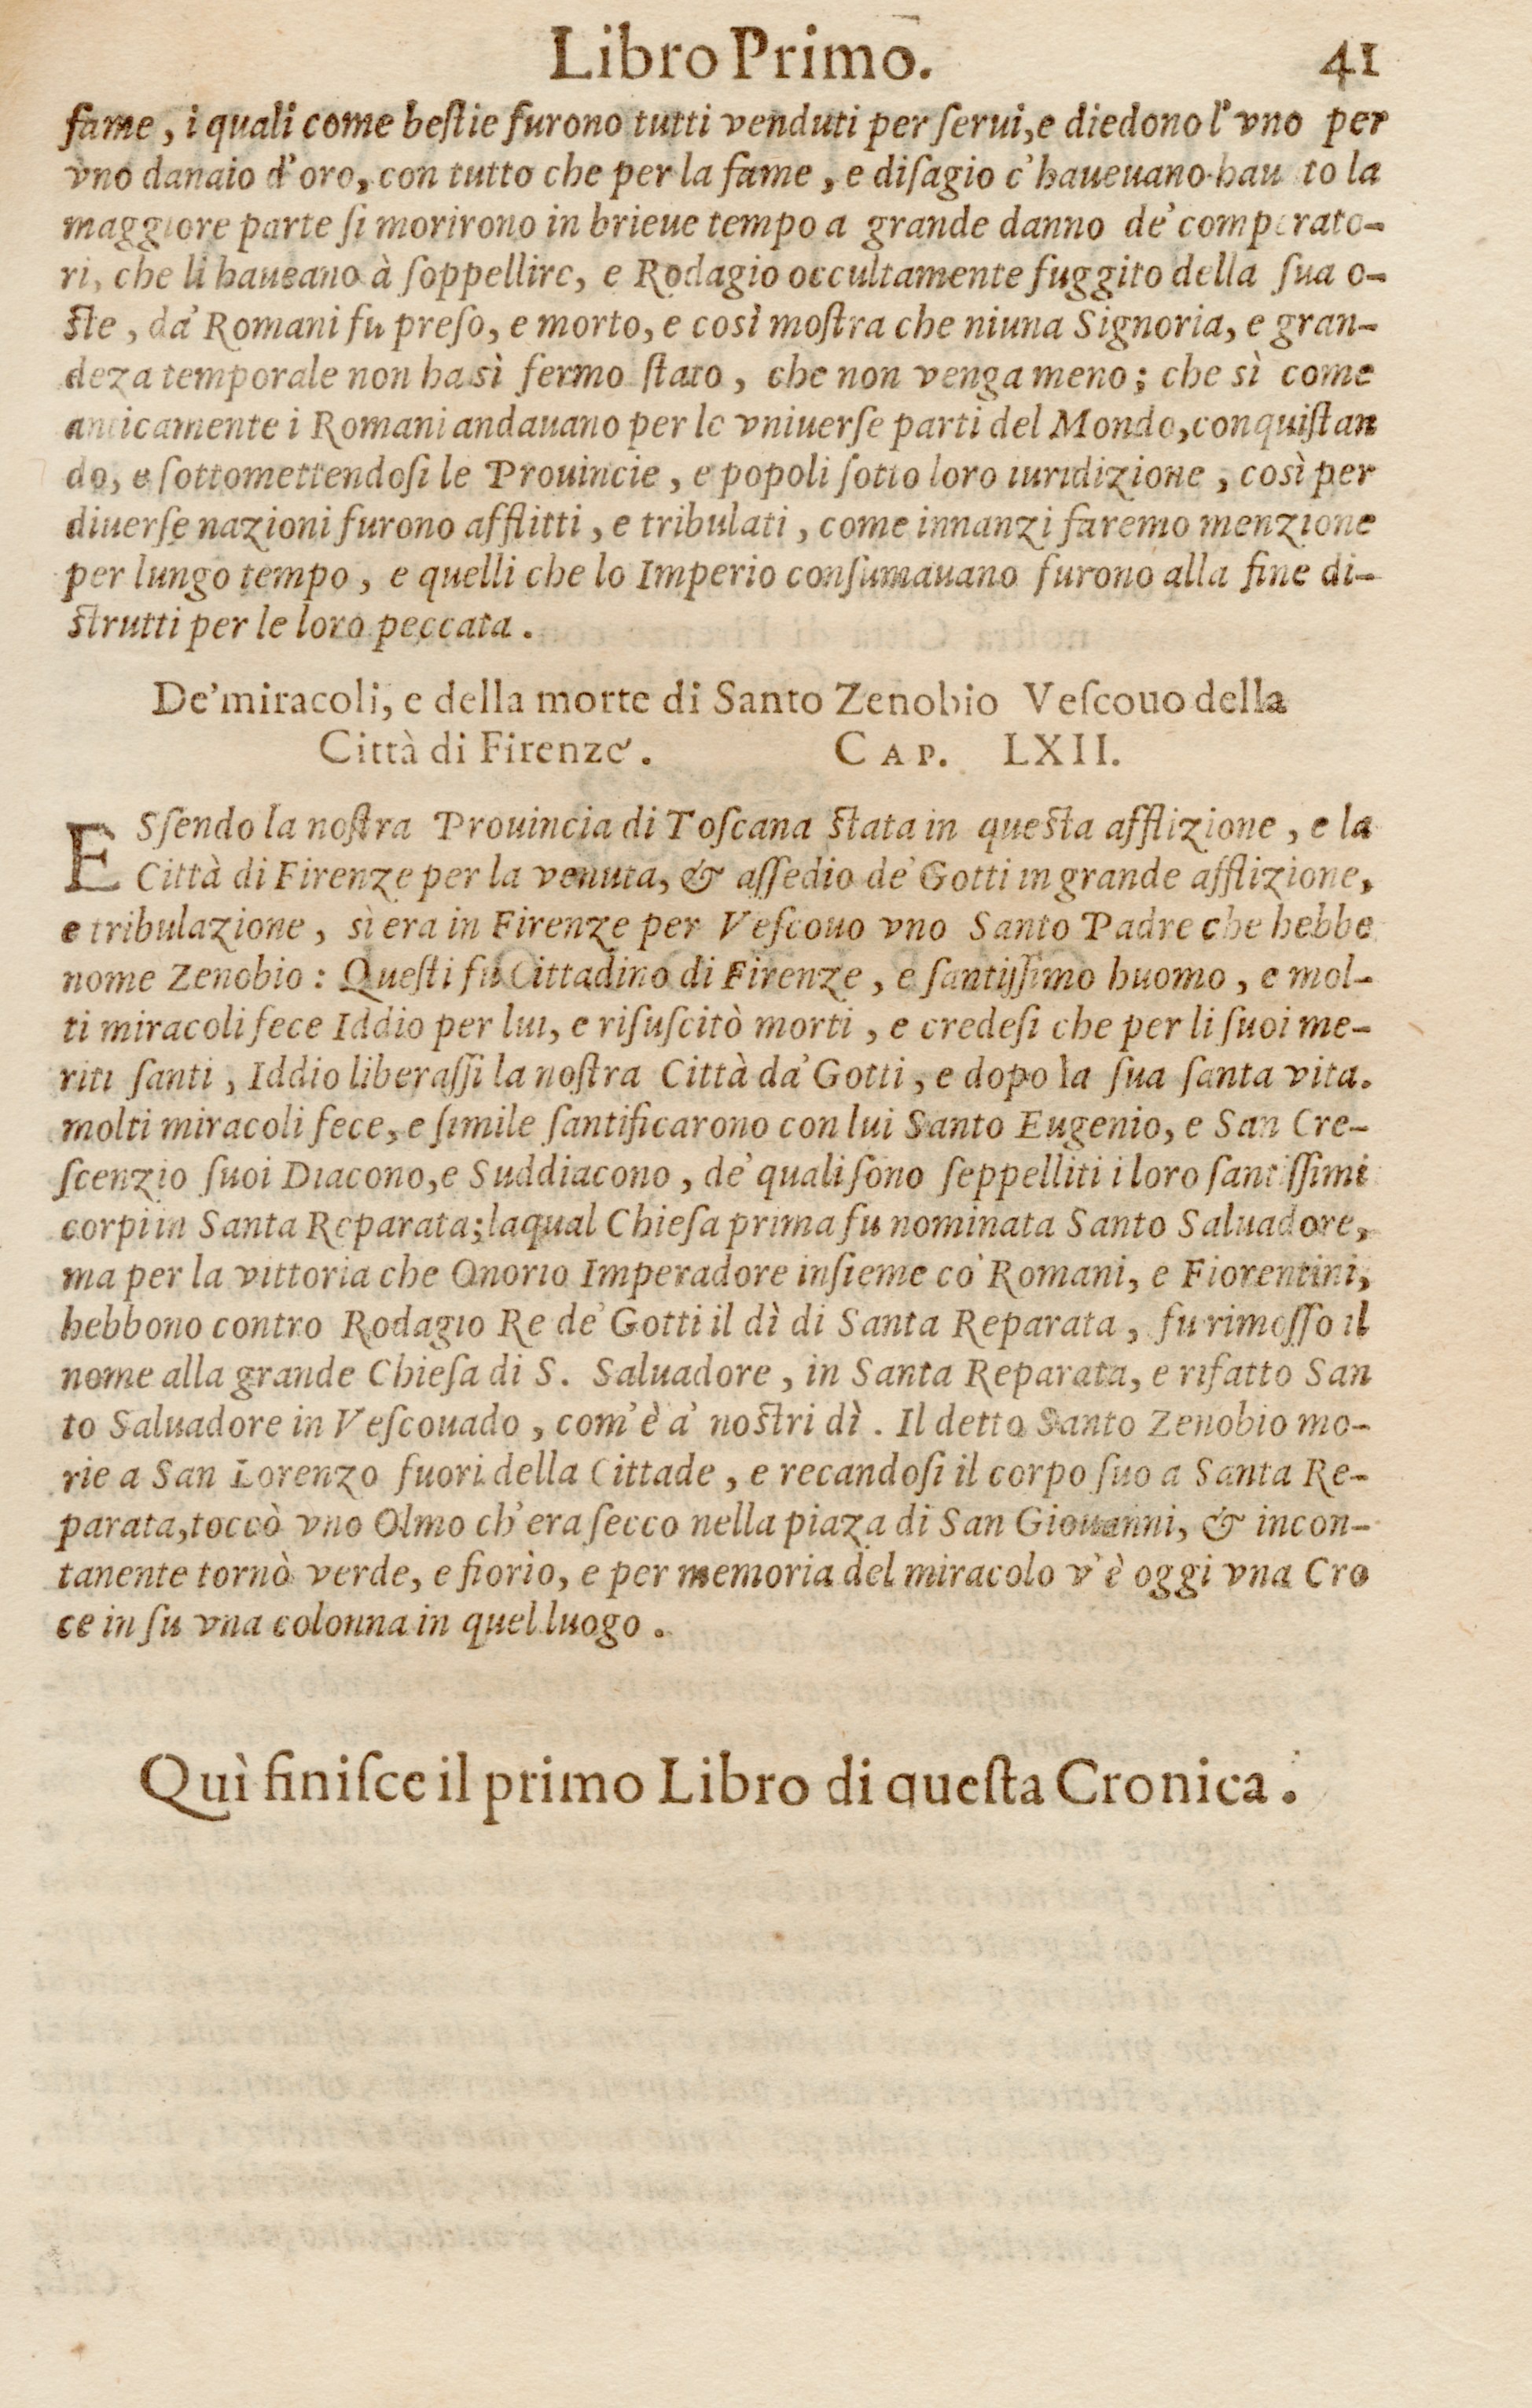 Libro Primo. 41
fame, i quali come beſtie furono tutti venduti per ſerui, e diedono l'vno per
vno danaio d'oro, con tutto che per la fame, e diſagio c'haueuano hau to la
maggiore parte ſi morirono in brieue tempo a grande danno de' comperato-
ri, che li haueano à ſoppellire, e Rodagio occultamente fuggito della ſua o-
ſte, da' Romani fu preſo, e morto, e così moſtra che niuna Signoria, e gran-
deza temporale non ha sì fermo ſtato, che non venga meno; che sì come
anticamente i Romani andauano per le vniuerſe parti del Mondo, conquiſtan
do, e ſottomettendoſi le Prouincie, e popoli ſotto loro iuridizione, così per
diuerſe nazioni furono afflitti, e tribulati, come innanzi faremo menzione
per lungo tempo, e quelli che lo Imperio conſumauano furono alla fine di-
ſtrutti per le loro peccata.
De' miracoli, e della morte di Santo Zenobio Veſcouo della
Città di Firenze. CAP. LXII.
ESſendo la noſtra Prouincia di Toſcana ſtata in queſta afflizione, e la
Città di Firenze per la venuta, & aſſedio de' Gotti in grande afflizione,
e tribulazione, sì era in Firenze per Veſcouo vno Santo Padre che hebbe
nome Zenobio: Queſti fu Cittadino di Firenze, e ſantiſſimo huomo, e mol-
ti miracoli fece Iddio per lui, e riſuſcitò morti, e credeſi che per li ſuoi me-
riti ſanti, Iddio liberaſſi la noſtra Città da' Gotti, e dopo la ſua ſanta vita.
molti miracoli fece, e ſimile ſantificarono con lui Santo Eugenio, e San Cre-
ſcenzio ſuoi Diacono, e Suddiacono, de' quali ſono ſeppelliti i loro ſantiſſimi
corpi in Santa Reparata; laqual Chieſa prima fu nominata Santo Saluadore,
ma per la vittoria che Onorio Imperadore inſieme co' Romani, e Fiorentini,
hebbono contro Rodagio Re de' Gotti il dì di Santa Reparata, fu rimoſſo il
nome alla grande Chieſa di S. Saluadore, in Santa Reparata, e rifatto San
to Saluadore in Veſcouado, com'è a' noſtri dì. Il detto Santo Zenobio mo-
rie a San Lorenzo fuori della Cittade, e recandoſi il corpo ſuo a Santa Re-
parata, toccò vno Olmo ch'era ſecco nella piaza di San Giouanni, & incon-
tanente tornò verde, e fiorìo, e per memoria del miracolo v'è oggi vna Cro
ce in ſu vna colonna in quel luogo.
Quì finiſce il primo Libro di queſta Cronica.